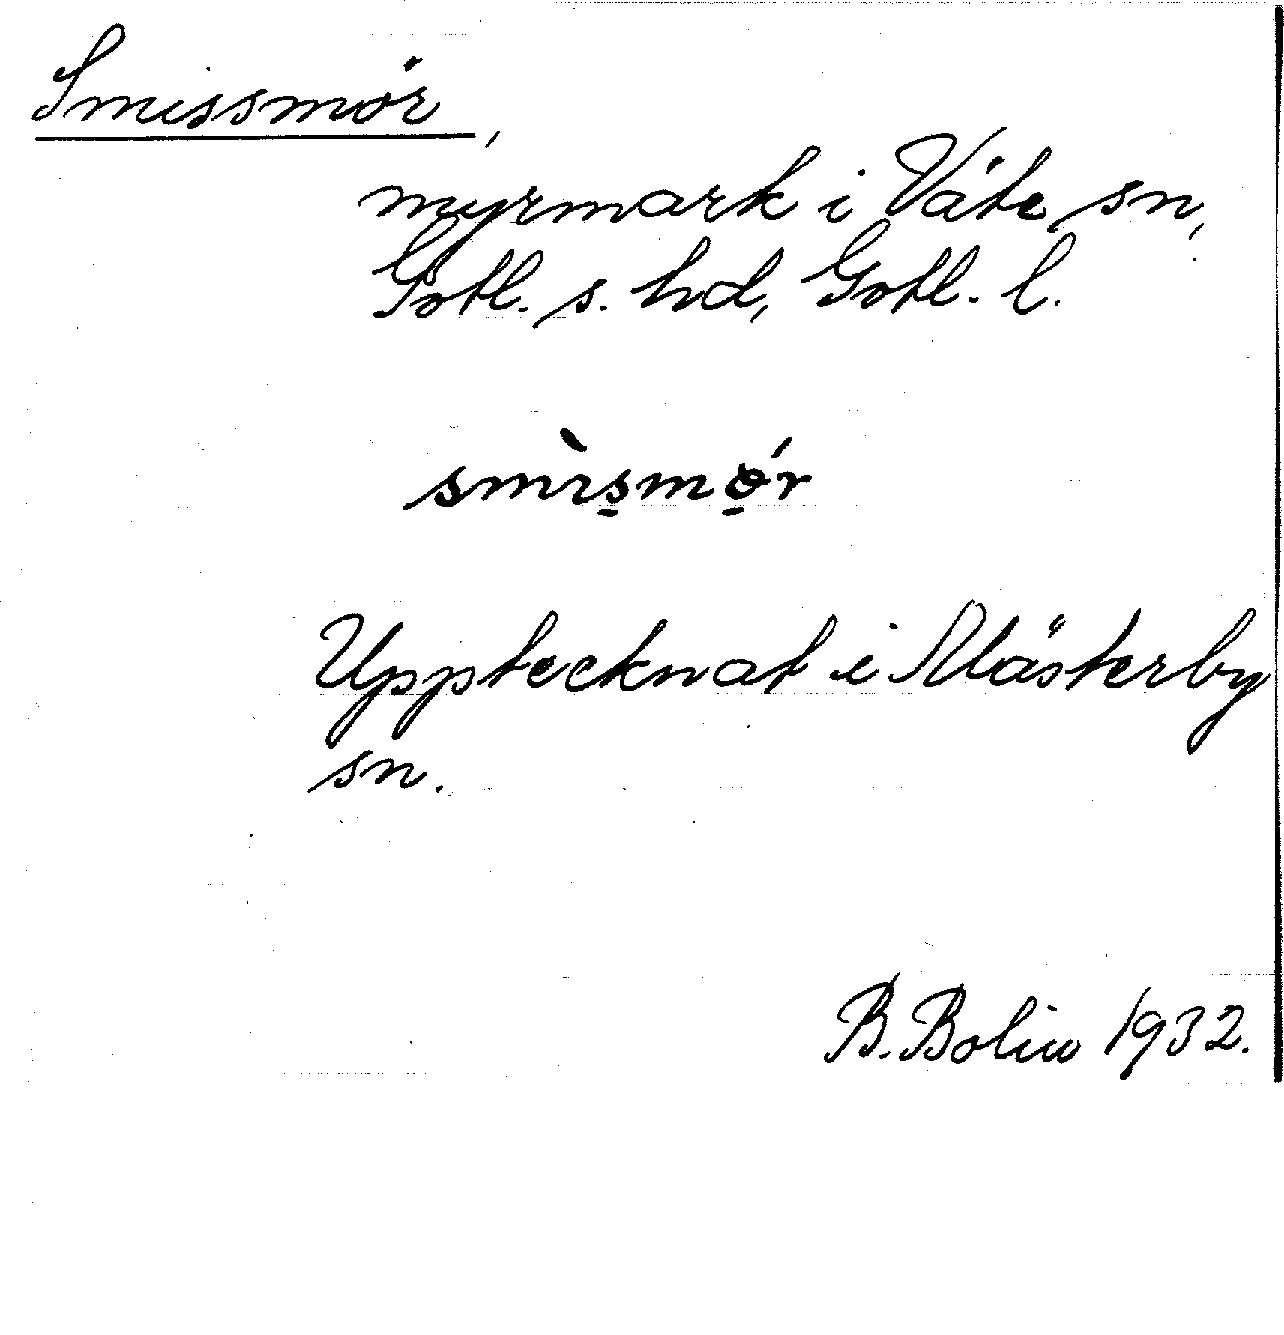 Smissmör,
myrmark i Väte sn,
Gotl. s. hd, Gotl. l.
Upptecknat i Mästerby
sn.
B. Bolin 1932.